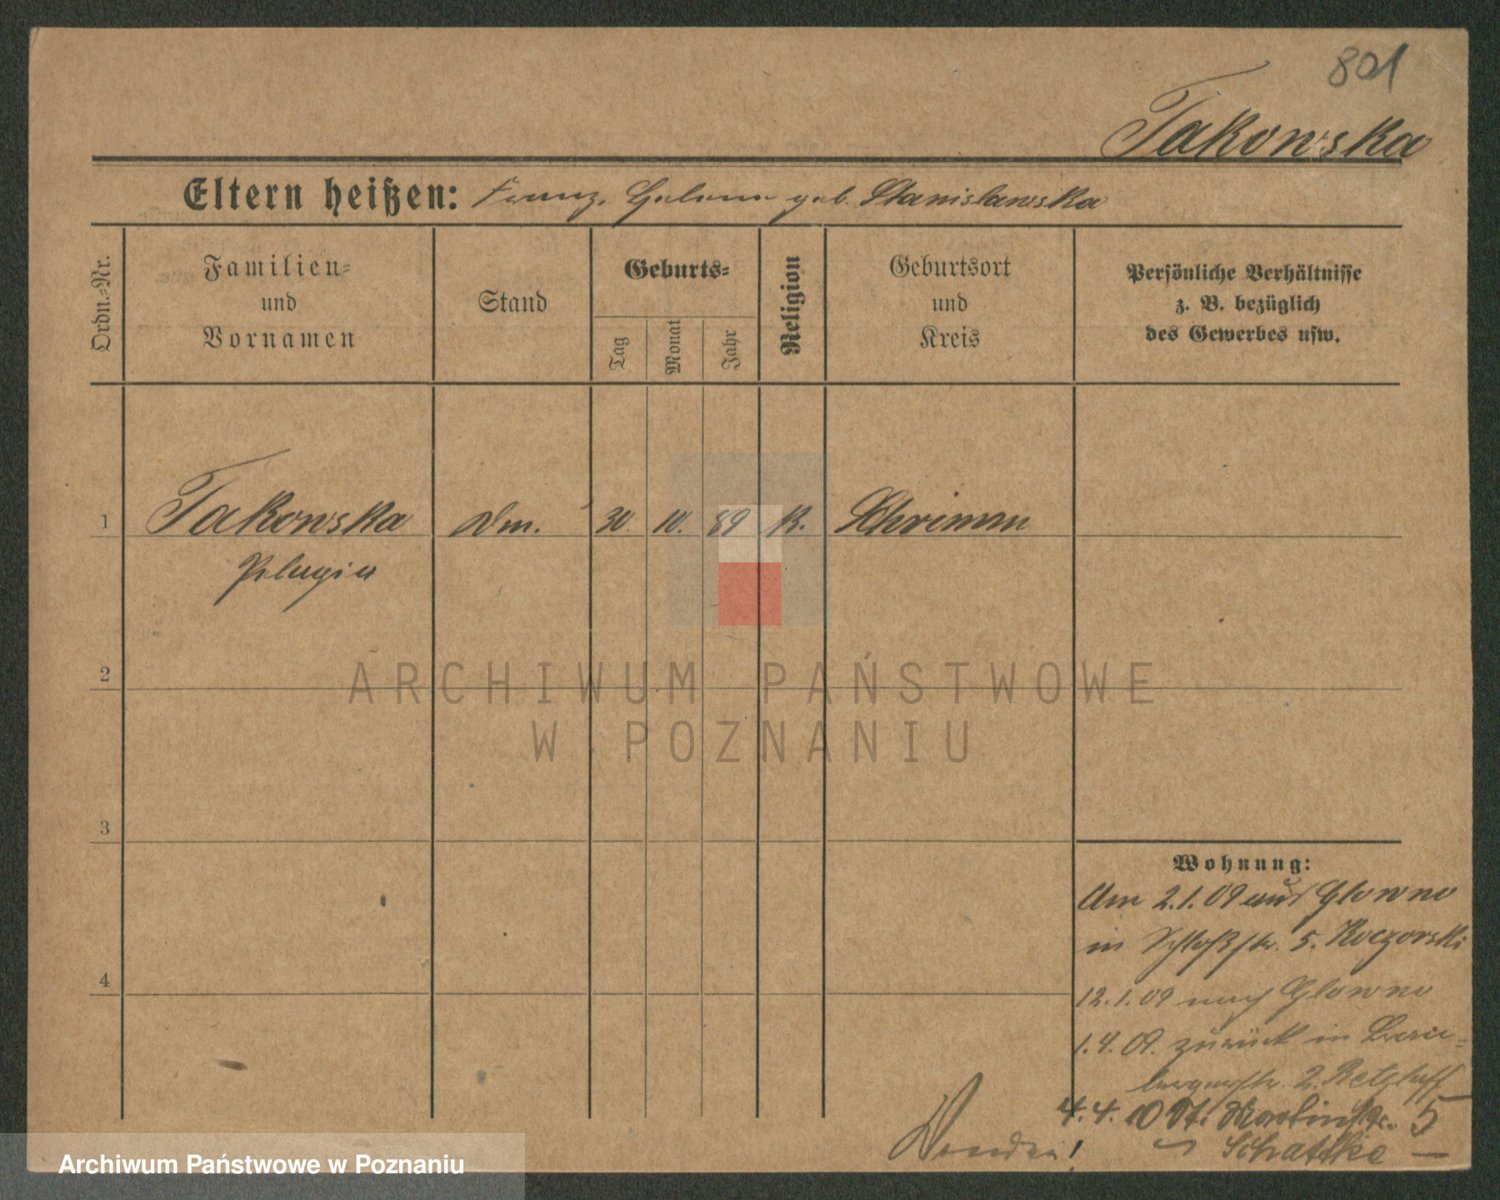 801
Takowska
Eltern heißen: Franz, Helena geb. Stanislawska
Ordn.-Nr.
Familien- und Vornamen
Stand
Geburts-
Tag
Monat
Jahr
Religion
Geburtsort und Kreis
Persönliche Verhältnisse z. B. bezüglich des Gewerbes usw.
1 Takowska Dm. 30. 10. 89 K. Schrimm
Pelagia
2
3
4
Wohnung:
Am 2.1.09 aus Glowno
in Schloßstr. 5. Koczorski
12.1.09 nach Glowno
1.4.09. zurück in
2.
4.4.10 St. Martinstr. 5
Schattke
Wenden!
ARCHIWUM PAŃSTWOWE
W POZNANIU
Archiwum Państwowe w Poznaniu